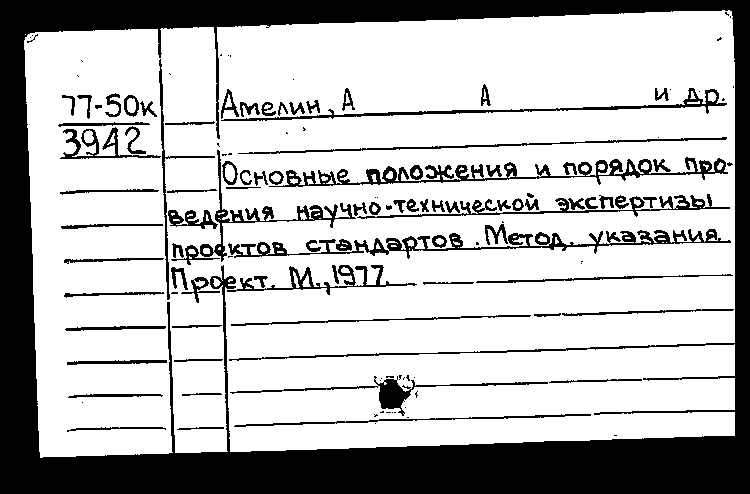 77-50к Амелин, А А и др.
3942
Основные положения и порядок про-
ведения научно-технической экспертизы
проектов стандартов. Метод. указания.
Проект. М., 1977.